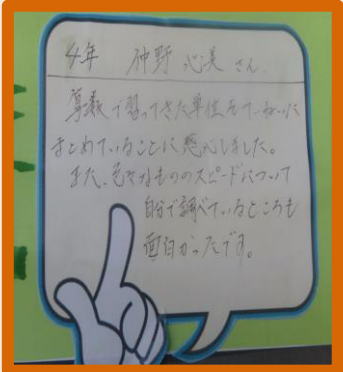 4年 仲野 心美 さん
算数で習ってきた単位をていねいに
まとめていることに感心しました。
また、色々なもののスピードについて
自分で調べているところも
面白かったです。